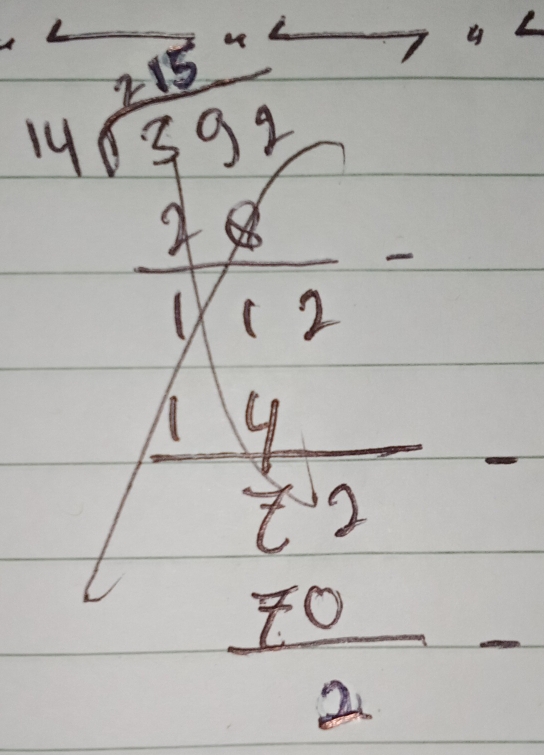 215
14 392
28
112
14
72
70
2